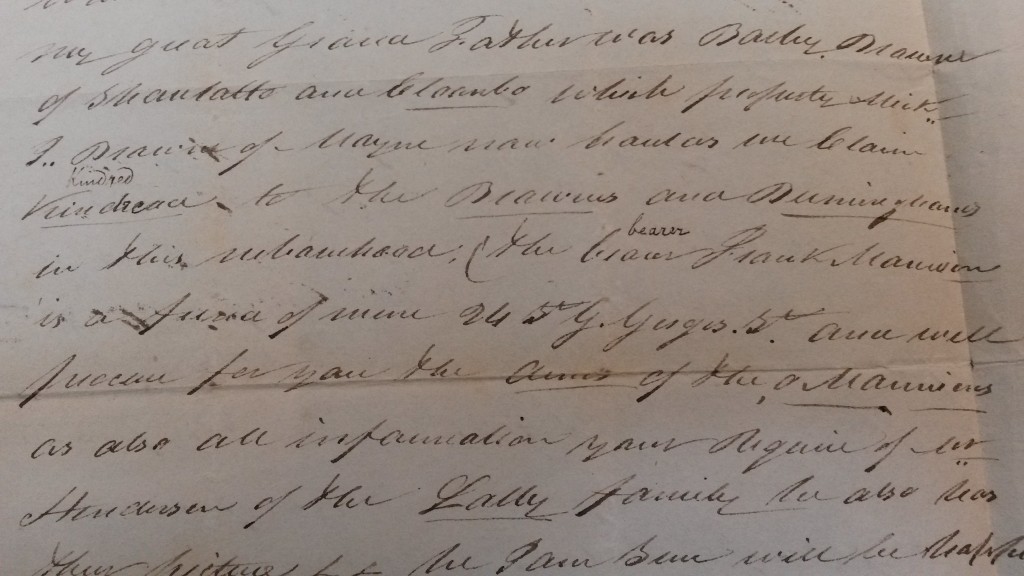 my great Grand Father was Barley Brawne
of Shantallo and Cloanbo which property Mick
J.. Brawne of Mayne now hould as we Claim
Kindred
Kindread to the Brawns and Birminghams
in this
bearer
(the bearer Frank Mannion
is a friend of mine 24 St. G. Gorges. St and will
procure for you the arms of the o Mannions
as also all infaumation your Require of Mr
Henderson of the Lally family he also has
their picture he will be